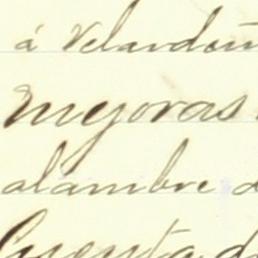 á Velarden
mejoras
alambre d
Cuenta d